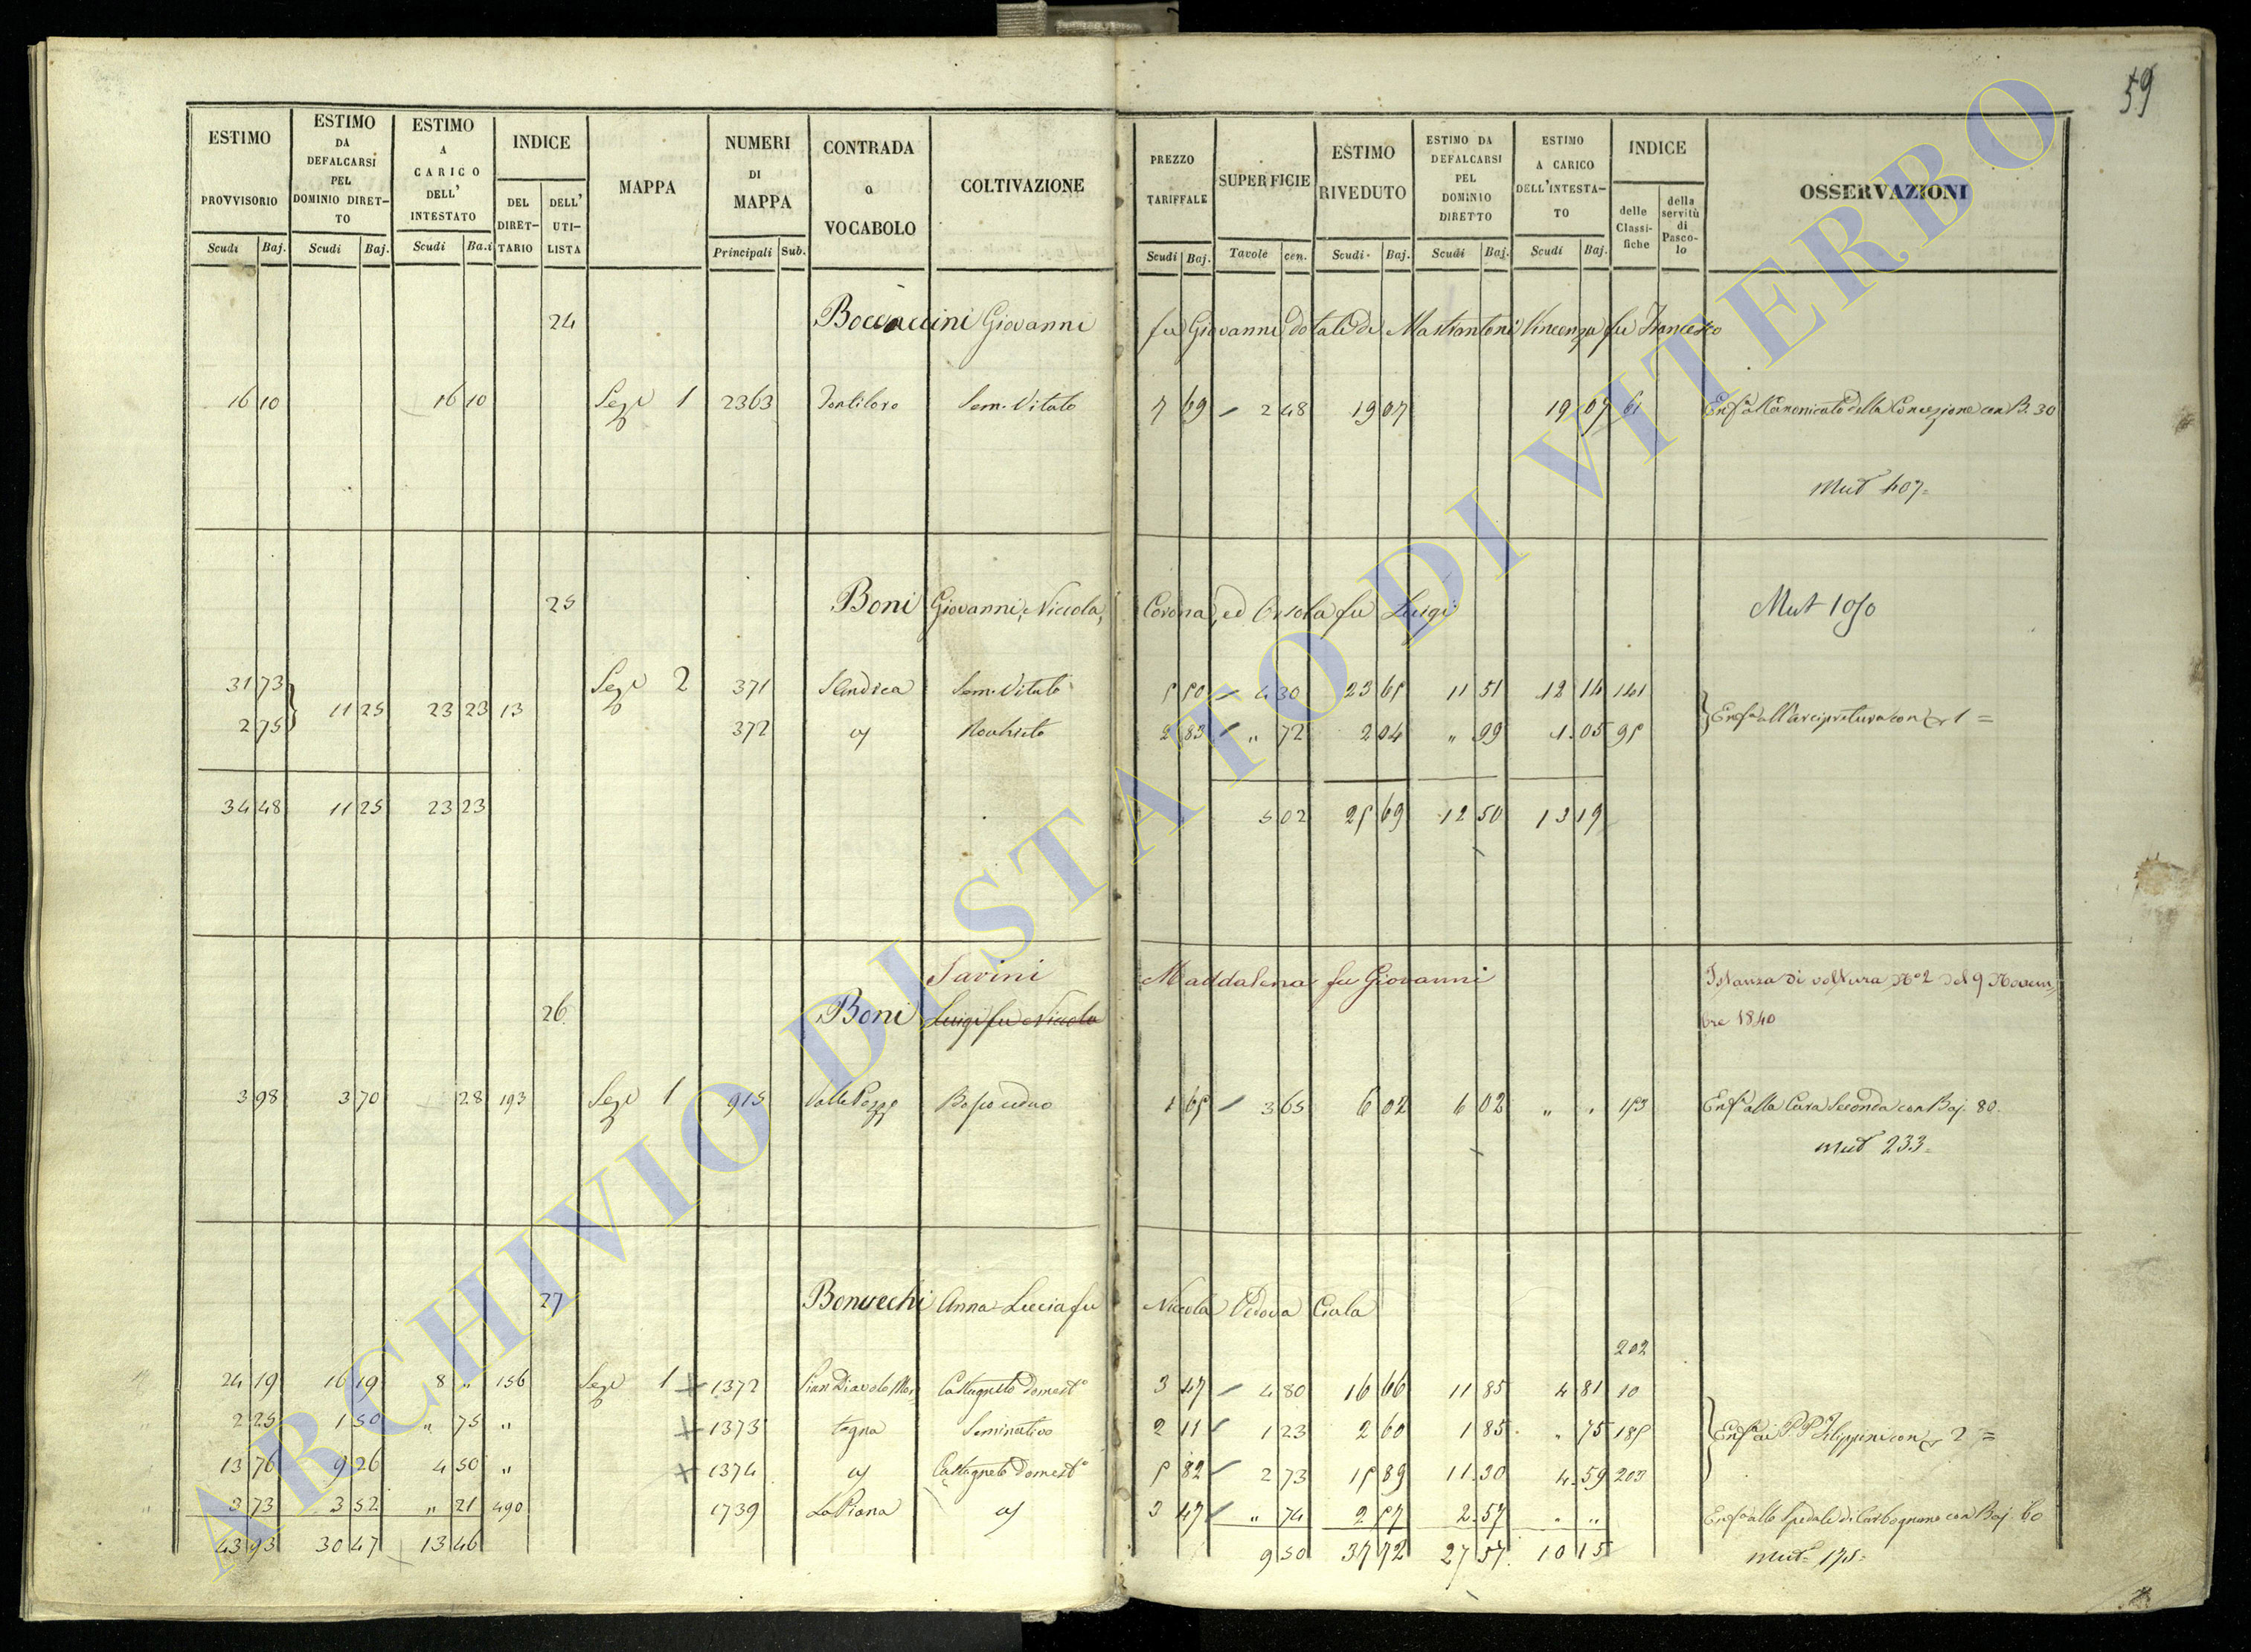 59
ESTIMO PROVVISORIO Scudi Baj. ESTIMO DA DEFALCARSI PEL DOMINIO DIRETTO Scudi Baj. ESTIMO A CARICO DELL' INTESTATO Scudi Ba.i INDICE DEL DIRETTARIO DELL' UTILISTA MAPPA NUMERI DI MAPPA Principali Sub. CONTRADA o VOCABOLO COLTIVAZIONE PREZZO TARIFFALE Scudi Baj. SUPERFICIE Tavole cen. ESTIMO RIVEDUTO Scudi Baj. ESTIMO DA DEFALCARSI PEL DOMINIO DIRETTO Scudi Baj. ESTIMO A CARICO DELL'INTESTATO Scudi Baj. INDICE delle Classifiche della servitù di Pascolo OSSERVAZIONI
24 Boccaccini Giovanni fu Giovanni dotale di Mastrantoni Vincenza fu Francesco
16 10 16 10 Sez.e 1 2363 Sem. Vitato 7 69 2 48 19 07 19 07 61 Enf.a al Canonicato della Concezione con B. 30
Mut 407=
25 Boni Giovanni, Niccola, Corona, ed Orsola fu Luigi Mut 1050
31 73 Sez.e 2 371 S. Andrea Sem. Vitato 5 50 4 30 23 65 11 51 12 14 141
11 25 23 23 13 Enf.a all'arcipretura con 1 =
2 75 372 2 83 " 72 2 04 " 99 1 05 95
34 48 11 25 23 23 5 02 25 69 12 50 13 19
Savini Maddalena fu Giovanni Istanza di voltura N.o 2 del 9 Novem
26 Boni Luigi fu Niccola bre 1840
3 98 3 70 28 193 Sez.e 1 915 Valle Pozzo Bosco ceduo 1 65 3 65 6 02 6 02 " " 153 Enf.a alla Cura Seconda con Baj. 80.
Mut 233=
27 Bonvechi Anna Lucia fu Niccola Vedova Ciala
202
24 19 16 19 8 " 156 Sez.e 1 1372 Pian Diavolo Mon Castagneto Domest.o 3 47 4 80 16 66 11 85 4 81 10
2 25 1 50 " 75 " 1373 tagna Seminativo 2 11 1 23 2 60 1 85 " 75 185 Enf.a ai PP. Filippini con 2 =
13 76 9 26 4 50 " 1374 Castagneto Domest.o 5 82 2 73 15 89 11 30 4 59 203
3 73 3 52 " 21 490 1739 La Piana 3 47 " 74 2 57 2 57 " " Enf.a allo Spedale di Carbognano con Baj. 60
43 93 30 47 13 46 9 50 37 72 27 57 10 15 Mut= 175=
ARCHIVIO DI STATO DI VITERBO